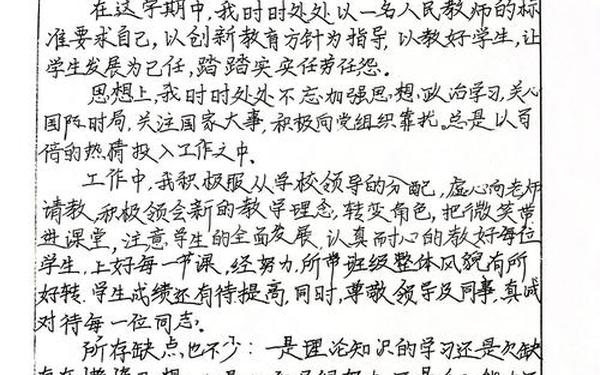 在这学期中,我时时处处以一名人民教师的标
准要求自己,以创新教育方针为指导,以教好学生,让
学生发展为己任,踏踏实实任劳任怨。
思想上,我时时处处不忘加强思想政治学习,关心
国际时局,关注国家大事,积极向党组织靠扰。总是以百
倍的热情投入工作之中。
工作中,我积极服从学校领导的分配,虚心向老师
请教,积极领会新的教学理念,转变角色,把微笑带
进课堂,注意学生的全面发展,认真耐心的教好每位
学生,上好每一节课,经努力,所带班级整体风貌有所
好转,学生成绩还有待提高,同时,尊敬领导及同事,真诚
对待每一位同志。
所存缺点也不少:一是理论知识的学习还是欠缺